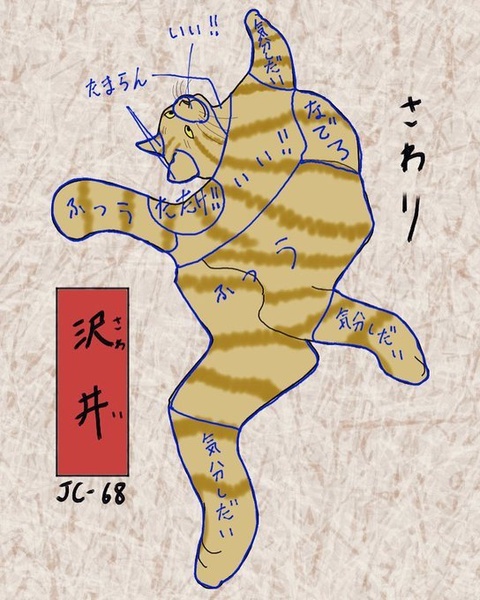 さわり
いい!!
たまらん
気分しだい
なでろ
いい!!
たたけ!!
ふつう
ふつう
気分しだい
気分しだい
沢井
さわい
JC-68